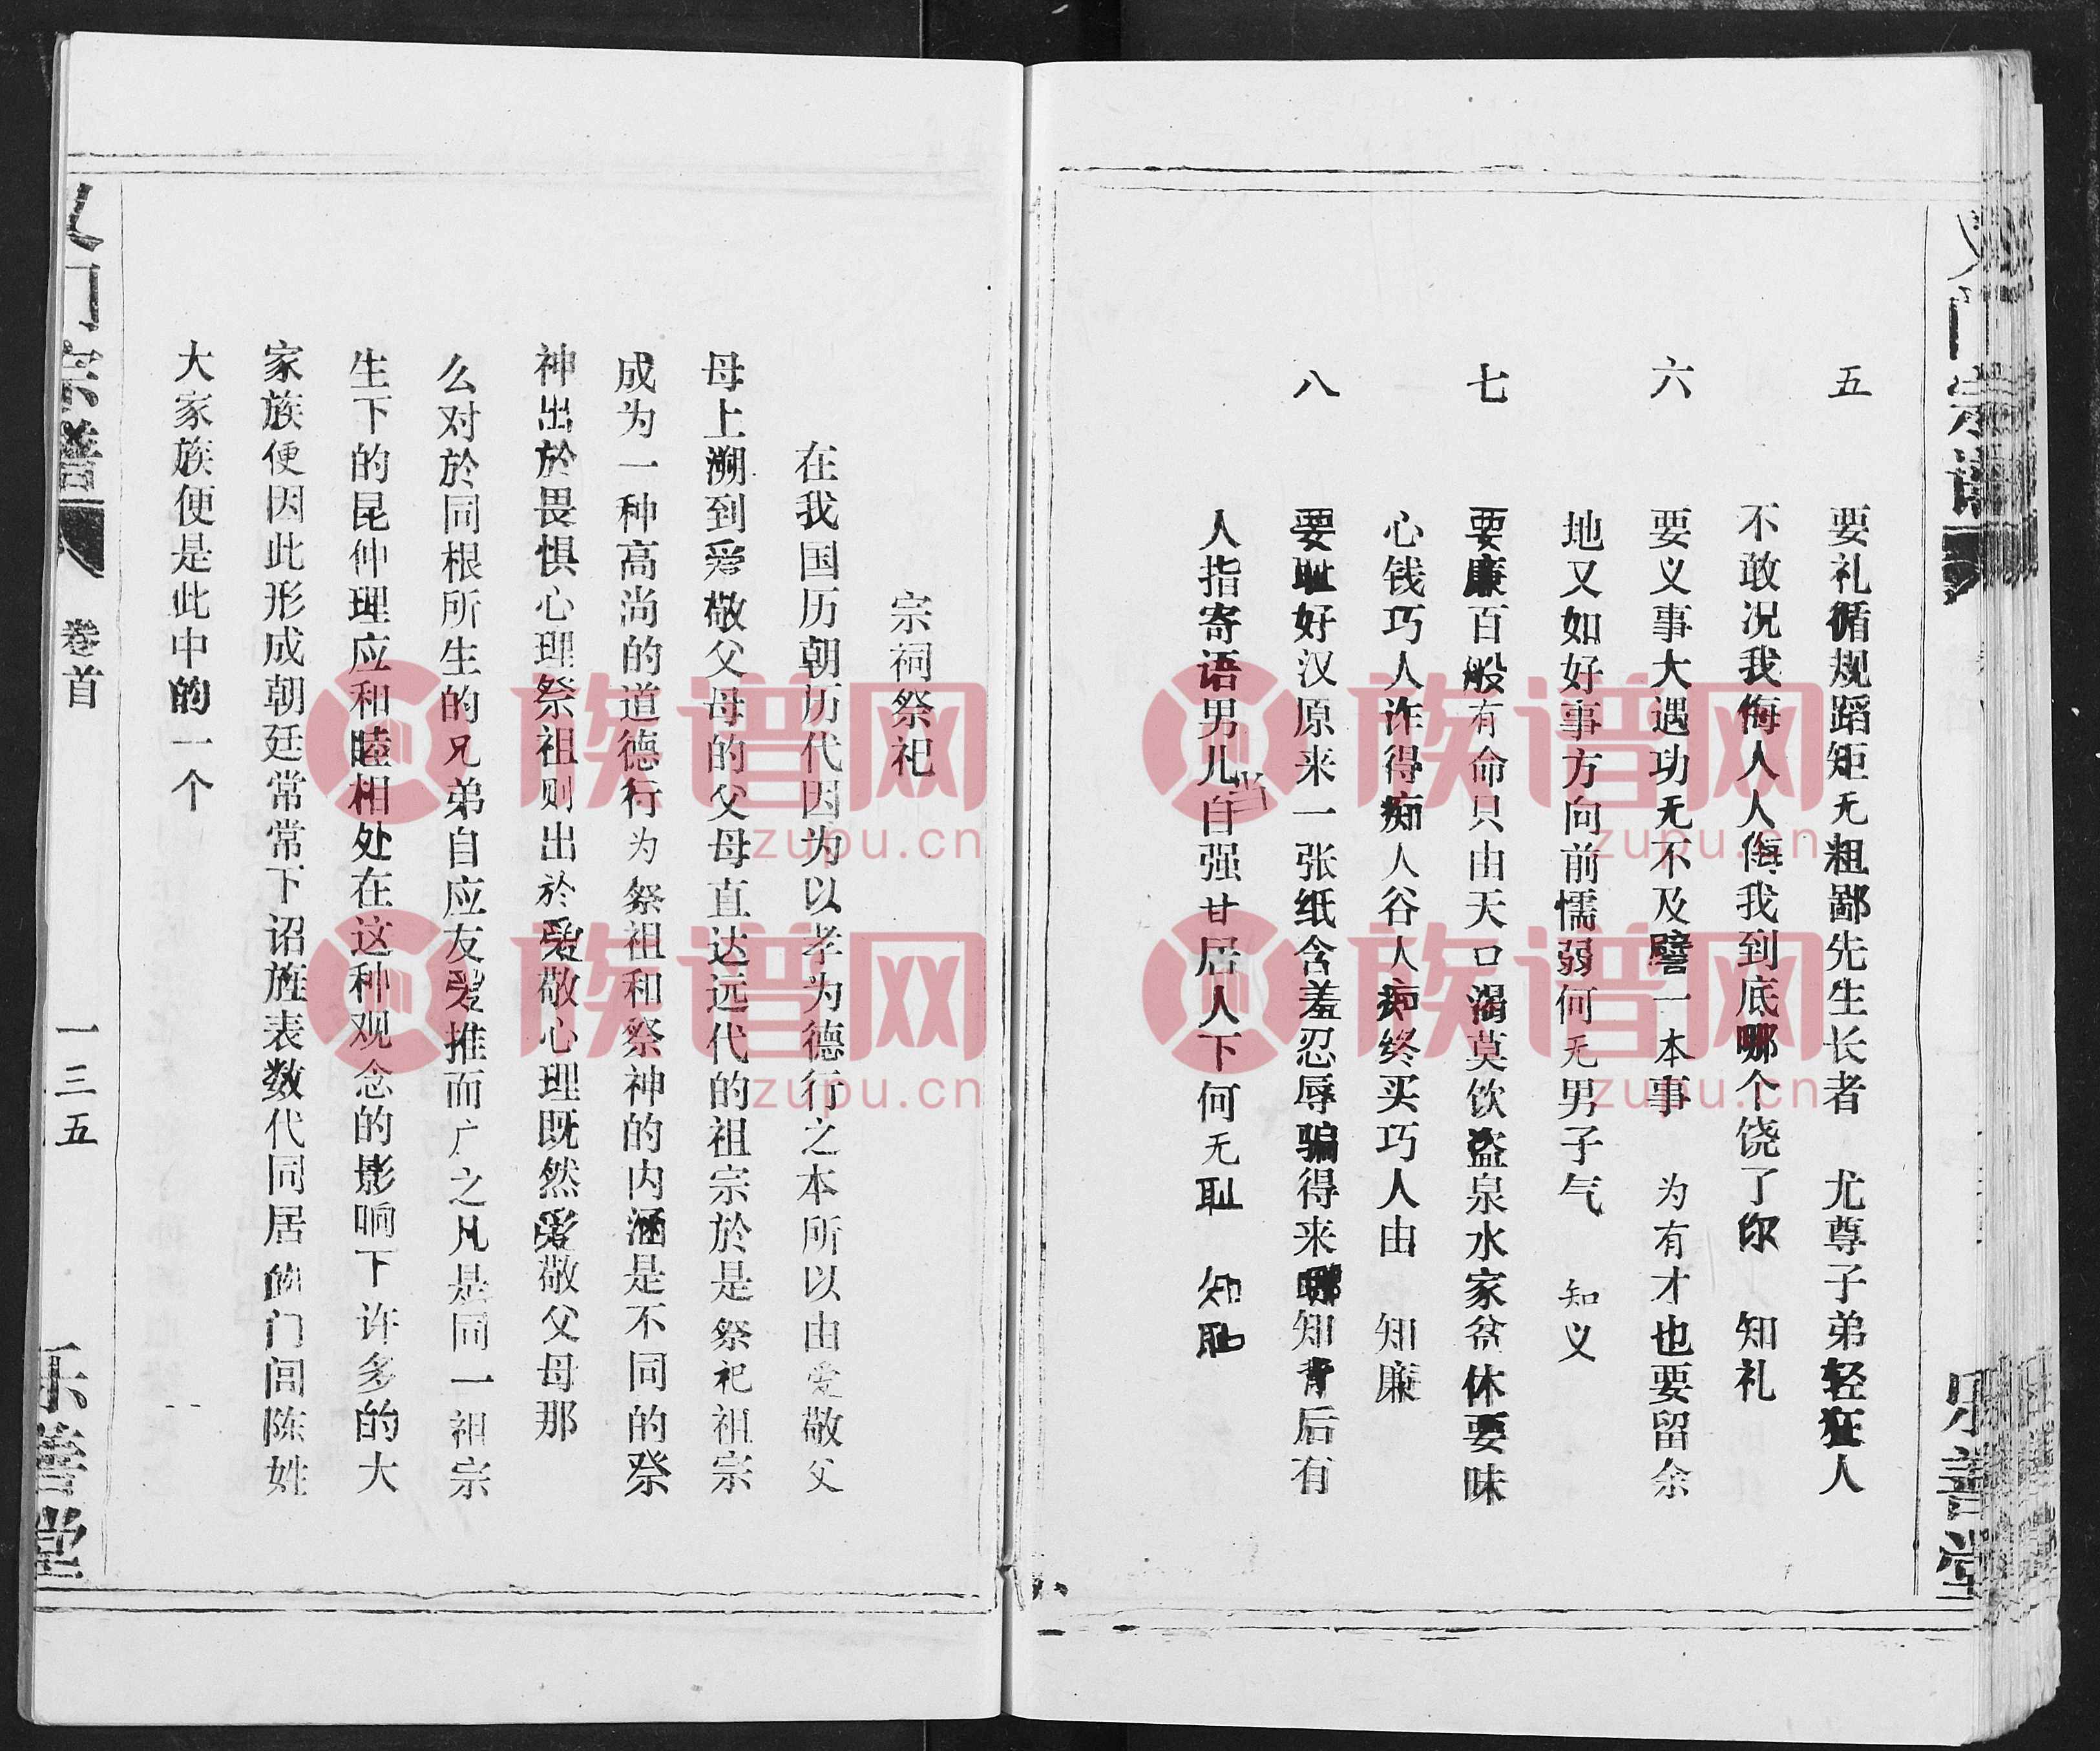 五
要礼循规蹈矩无粗鄙先生长者 尤尊子弟轻狂人
不敢况我侮人人侮我到底哪个饶了你 知礼
六
要义事大遇功无不及譬一本事 为有才也要留余
地又如好事方向前懦弱何无男子气 知义
七
要廉百般有命只由天口渴莫饮盗泉水家贫休要味
心钱巧人诈得痴人谷人痴终买巧人由 知廉
八
要耻好汉原来一张纸含羞忍辱骗得来哪知背后有
人指寄语男儿当自强甘居人下何无耻 知耻
宗祠祭祀
在我国历朝历代因为以孝为德行之本所以由爱敬父
母上溯到爱敬父母的父母直达远代的祖宗於是祭祀祖宗
成为一种高尚的道德行为祭祖和祭神的内涵是不同的祭
神出於畏惧心理祭祖则出於爱敬心理既然爱敬父母那
么对於同根所生的兄弟自应友爱推而广之凡是同一祖宗
生下的昆仲理应和睦相处在这种观念的影响下许多的大
家族便因此形成朝廷常常下诏旌表数代同居的门闾陈姓
大家族便是此中的一个
义门宗谱
卷首
一三五
乐善堂
义门宗谱
乐善堂
族谱网
zupu.cn
族谱网
zupu.cn
族谱网
zupu.cn
族谱网
zupu.cn